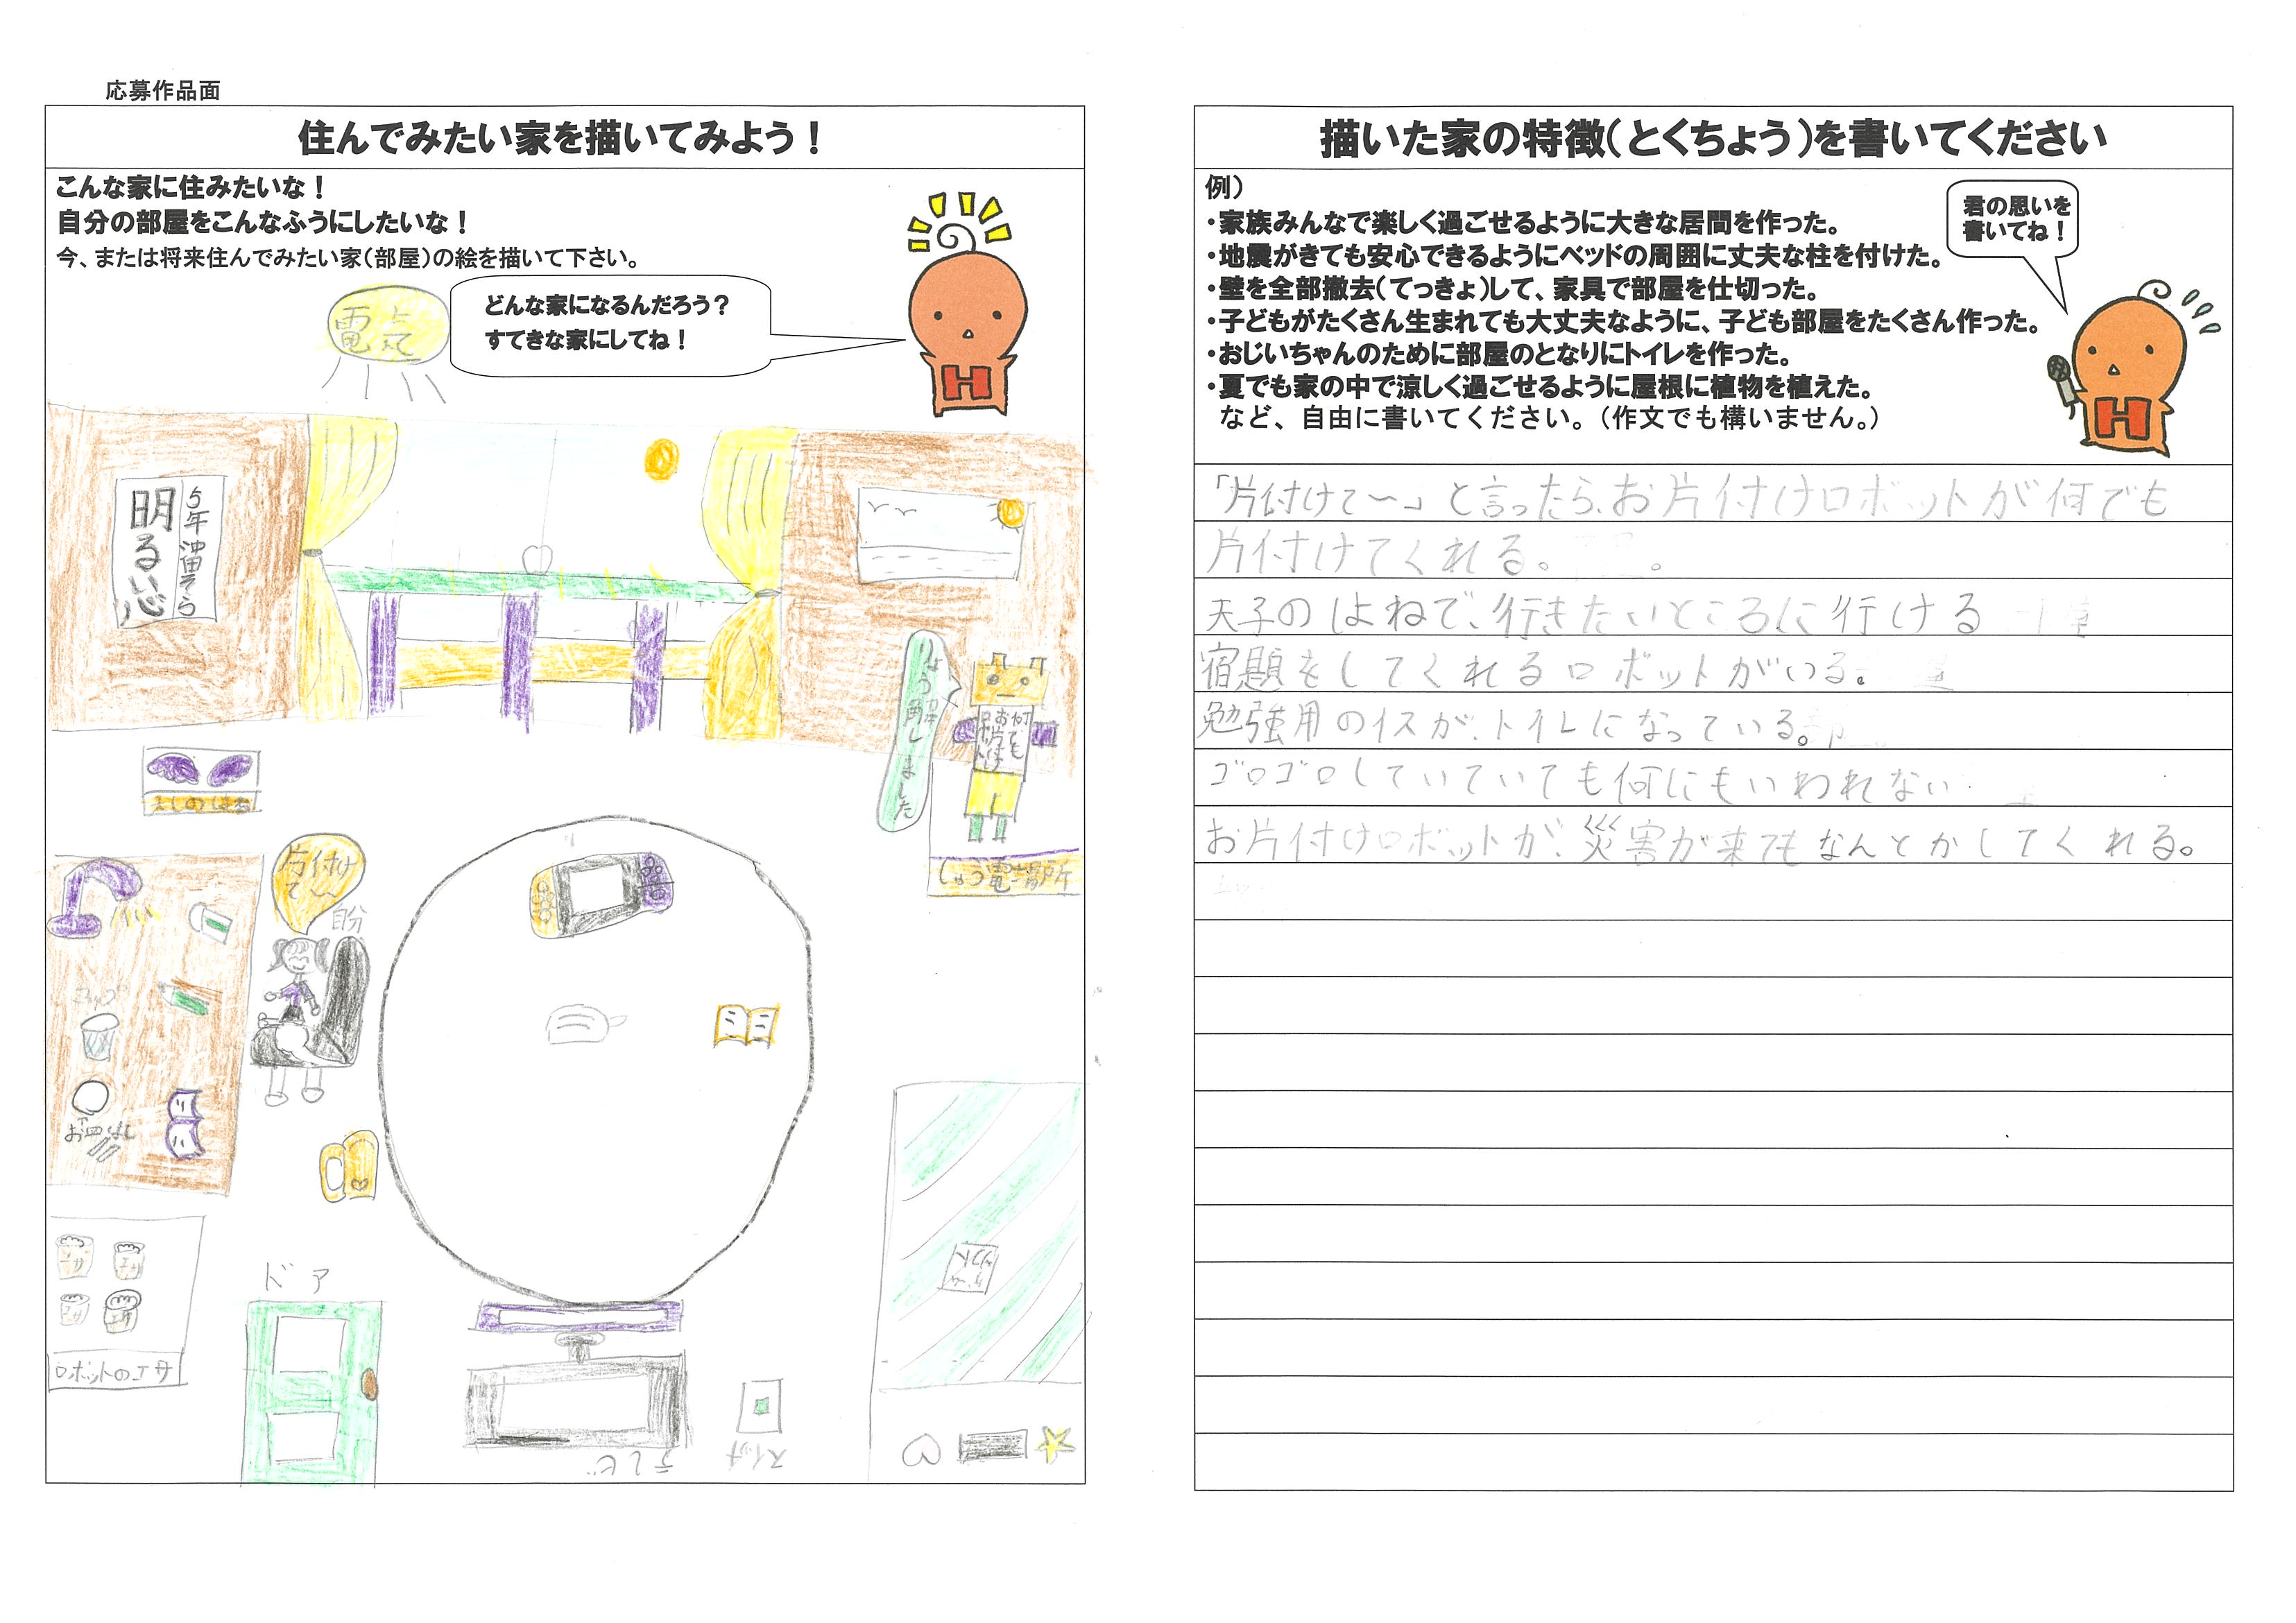 応募作品面
住んでみたい家を描いてみよう！
こんな家に住みたいな！
自分の部屋をこんなふうにしたいな！
今、または将来住んでみたい家（部屋）の絵を描いて下さい。
どんな家になるんだろう？
すてきな家にしてね！
電気
5年
明るい心
りょう解しました
何でも
お片付け
片付け
て〜
自分
じゅう電場所
コップ
お皿
はし
エサ
エサ
エサ
エサ
ロボットのエサ
ドア
テレビ
スイッチ
描いた家の特徴（とくちょう）を書いてください
例）
・家族みんなで楽しく過ごせるように大きな居間を作った。
・地震がきても安心できるようにベッドの周囲に丈夫な柱を付けた。
・壁を全部撤去（てっきょ）して、家具で部屋を仕切った。
・子どもがたくさん生まれても大丈夫なように、子ども部屋をたくさん作った。
・おじいちゃんのために部屋のとなりにトイレを作った。
・夏でも家の中で涼しく過ごせるように屋根に植物を植えた。
など、自由に書いてください。（作文でも構いません。）
君の思いを
書いてね！
「片付けて〜」と言ったら、お片付けロボットが何でも
片付けてくれる。
天子のはねで、行きたいところに行ける
宿題をしてくれるロボットがいる。
勉強用のイスが、トイレになっている。
ゴロゴロしていていても何にもいわれない
お片付けロボットが、災害が来てもなんとかしてくれる。